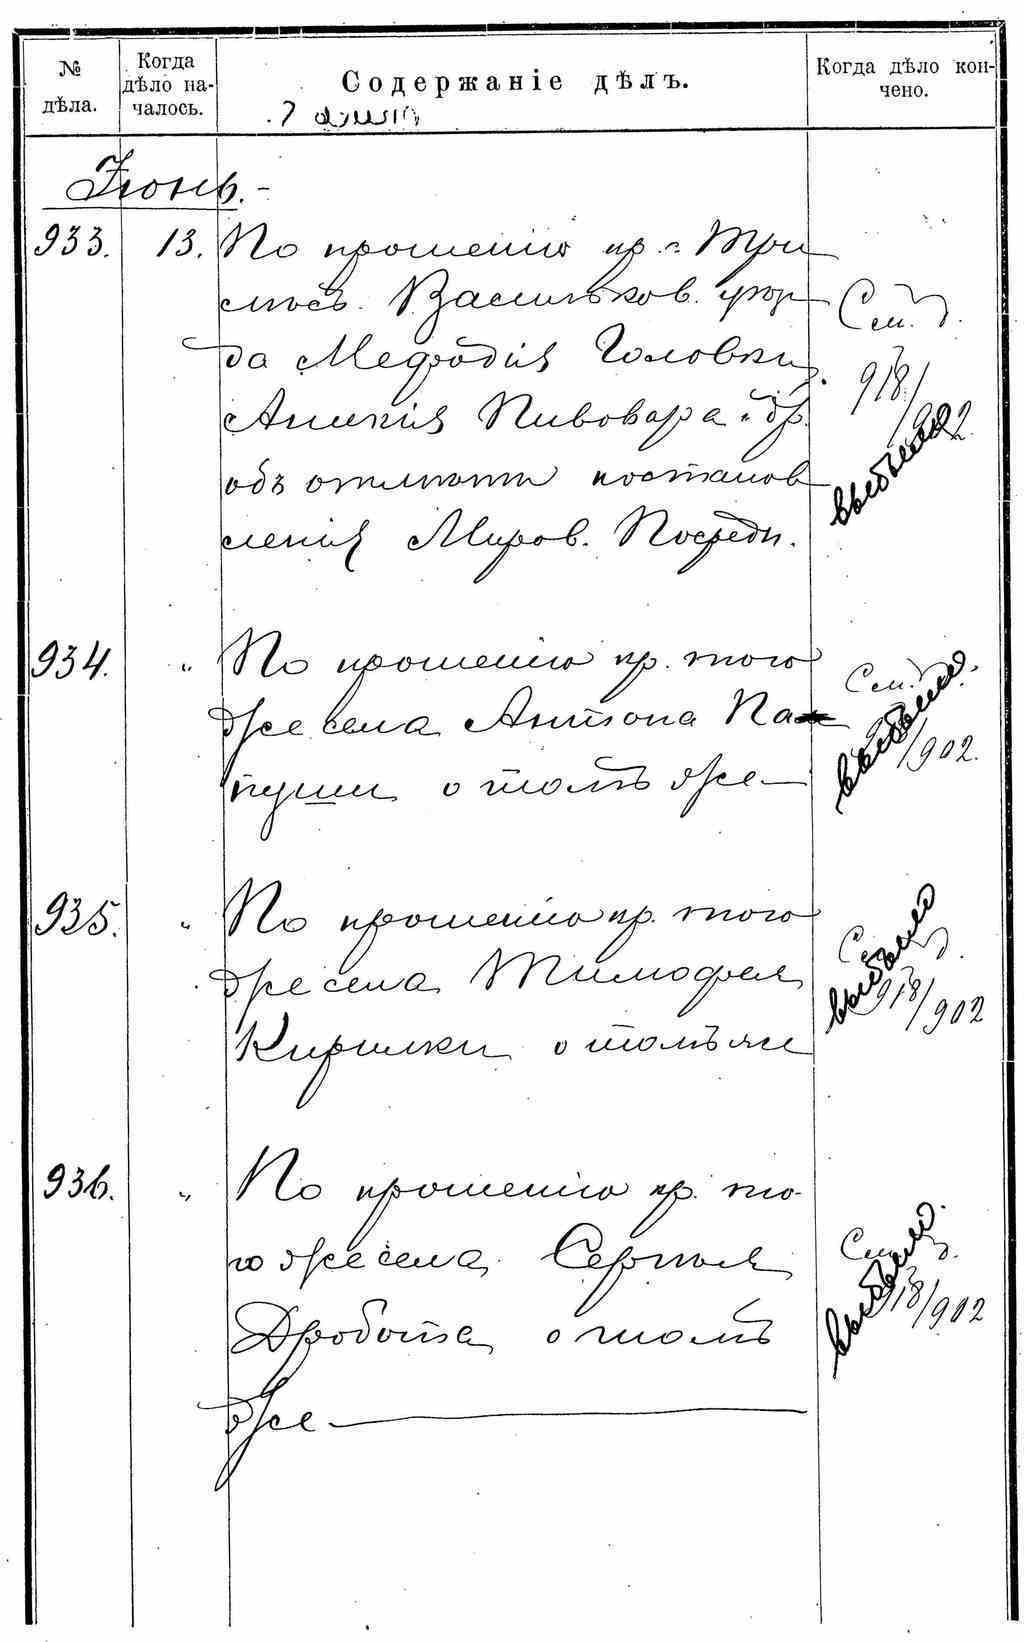 № дѣла.
Когда дѣло началось.
Содержаніе дѣлъ.
Когда дѣло кончено.
Іюнь.-
933. 13. По прошенію кр. с. Три
лѣсъ. Васильков. уѣз
да Мефодія Головки
Алексія Пивовара и др.
объ отмѣнѣ постанов
ленія Миров. Посредн.
См. д.
918/902
выбыло
934. " По прошенію кр. того
же села Антона Па
пуши о томъ же —
См. д.
918/902.
выбыло.
935. " По прошенію кр. того
же села Тимофея
Кирилки о томъ же
См. д.
918/902
выбыло
936. " По прошенію кр. то-
го же села Сергѣя
Дробота о томъ
же —
См. д.
918/902
выбыло.